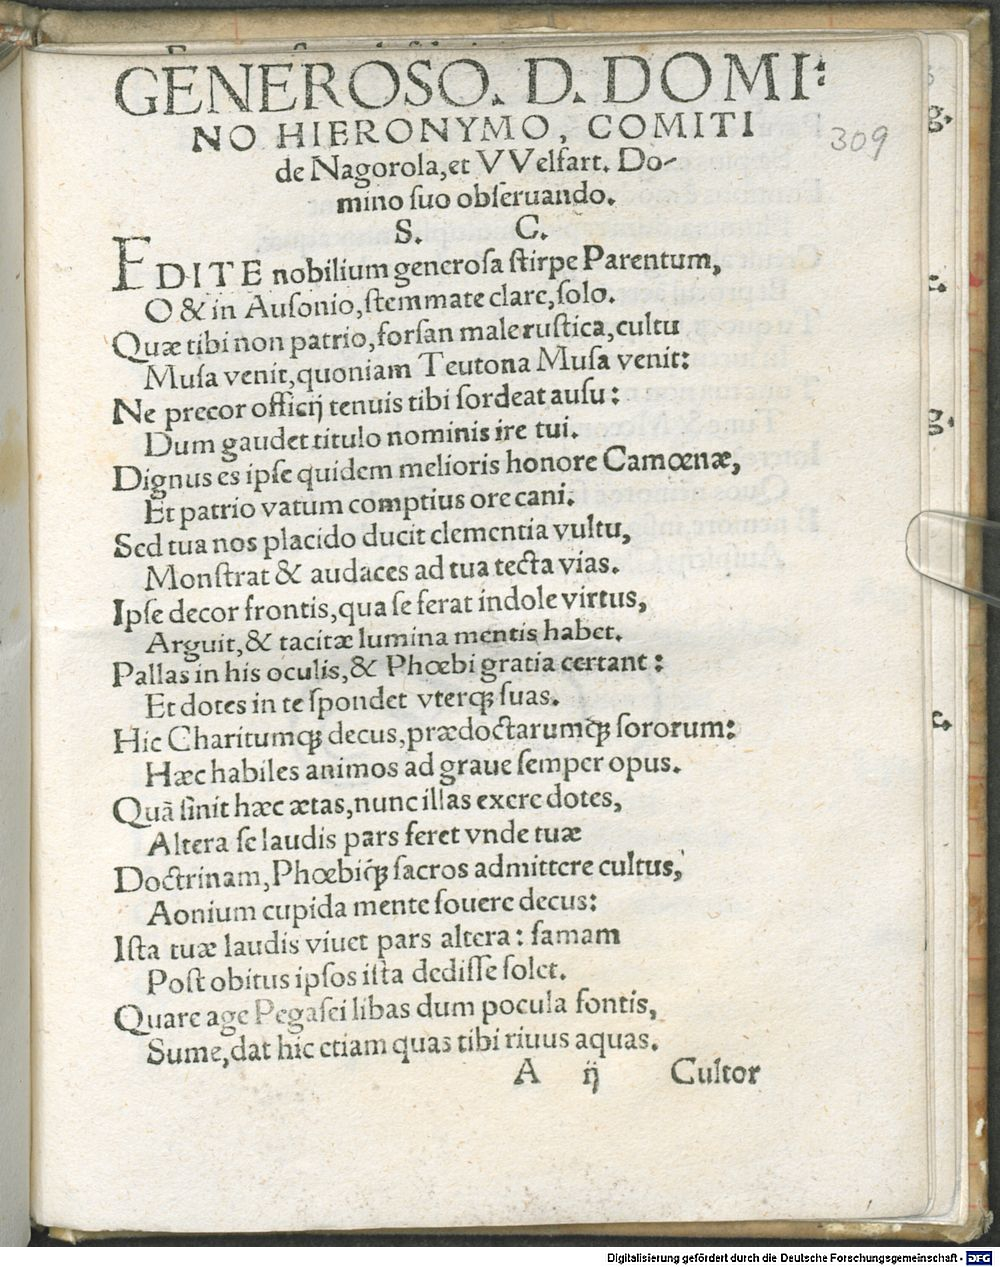 GENEROSO. D. DOMI:
NO HIERONYMO, COMITI
de Nagorola, et VVelfart. Do-
mino suo obseruando.
S. C.
309
EDITE nobilium generosa stirpe Parentum,
O & in Ausonio, stemmate clare, solo.
Quæ tibi non patrio, forsan male rustica, cultu
Musa venit, quoniam Teutona Musa venit:
Ne precor officij tenuis tibi sordeat ausu:
Dum gaudet titulo nominis ire tui.
Dignus es ipse quidem melioris honore Camœnæ,
Et patrio vatum comptius ore cani.
Sed tua nos placido ducit clementia vultu,
Monstrat & audaces ad tua tecta vias.
Ipse decor frontis, qua se ferat indole virtus,
Arguit, & tacitæ lumina mentis habet.
Pallas in his oculis, & Phœbi gratia certant:
Et dotes in te spondet vterq; suas.
Hic Charitumq; decus, prædoctarumq; sororum:
Hæc habiles animos ad graue semper opus.
Quã sinit hæc ætas, nunc illas exere dotes,
Altera se laudis pars feret vnde tuæ
Doctrinam, Phœbiq; sacros admittere cultus,
Aonium cupida mente fouere decus:
Ista tuæ laudis viuet pars altera: famam
Post obitus ipsos ista dedisse solet.
Quare age Pegasei libas dum pocula fontis,
Sume, dat hic etiam quas tibi riuus aquas.
A ij Cultor
Digitalisierung gefördert durch die Deutsche Forschungsgemeinschaft - DFG